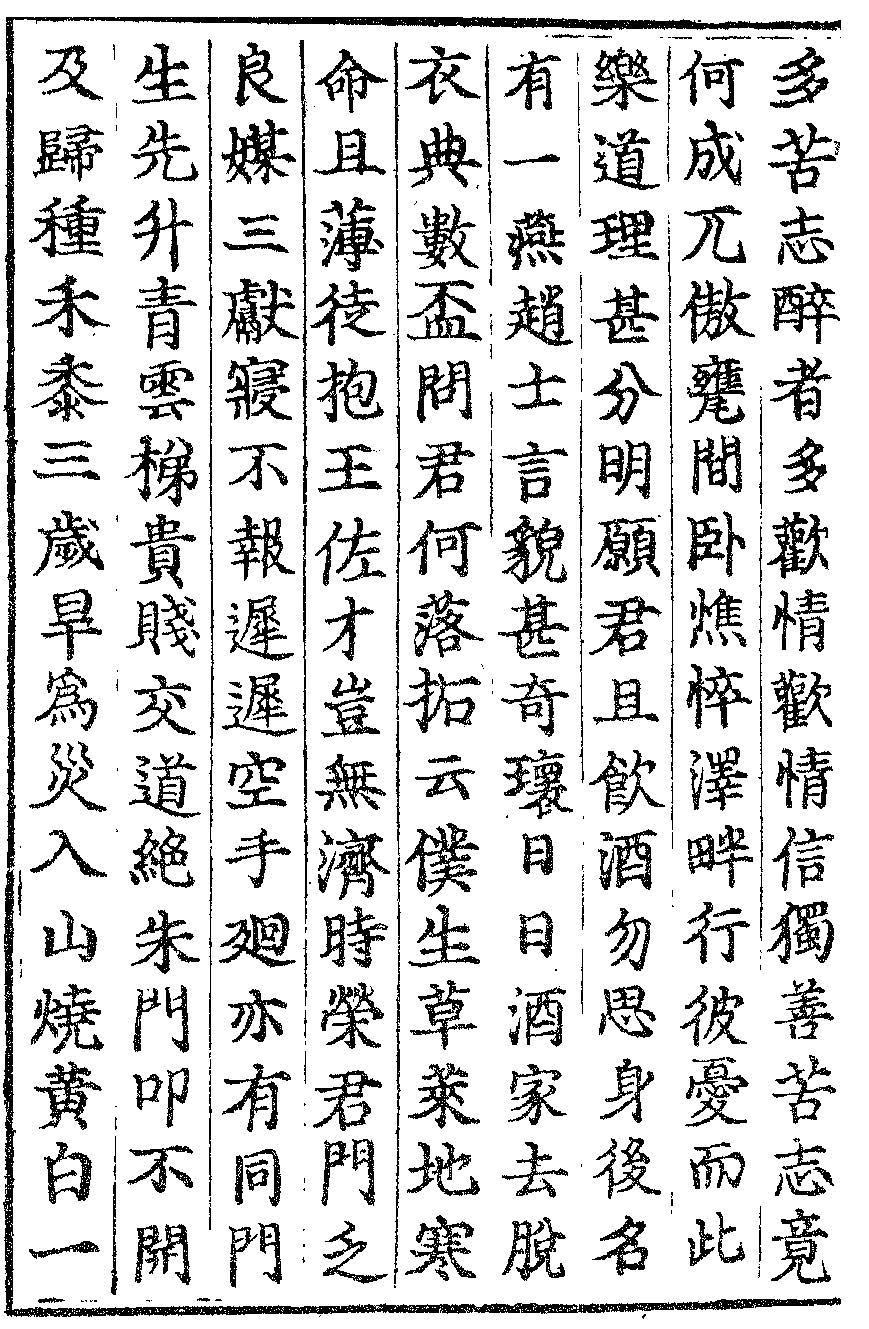 多苦志醉者多歡情歡情信獨善苦志竟
何成兀傲甕間卧憔悴澤畔行彼憂而此
樂道理甚分明願君且飲酒勿思身後名
有一燕趙士言貌甚奇瓌日日酒家去脫
衣典數盃問君何落拓云僕生草萊地寒
命且薄徒抱王佐才豈無濟時榮君門乏
良媒三獻寢不報遲遲空手廻亦有同門
生先升青雲梯貴賤交道絶朱門叩不開
及歸種禾黍三歲旱爲災入山燒黃白一